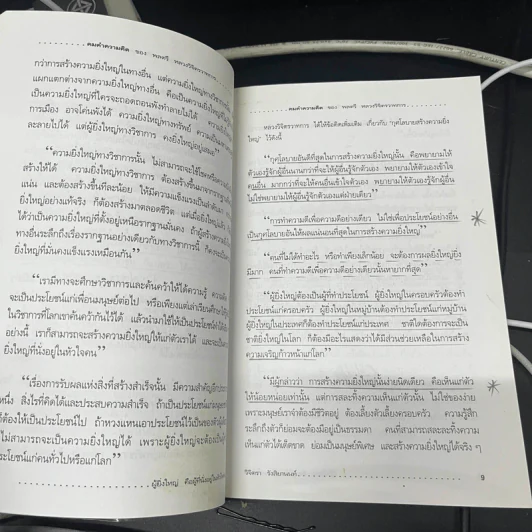 คมคำความคิด ของ พลตรี หลวงวิจิตรวาทการ
กว่าการสร้างความยิ่งใหญ่ในทางอื่น แต่ความยิ่งใหญ่ทางวิชาการ
แผกแตกต่างจากความยิ่งใหญ่ทางอื่น คือเป็นความยิ่งใหญ่
เป็นความยิ่งใหญ่ที่ใครจะถอดถอนพังทำลายไม่ได้ ความยิ่งใหญ่
การเมือง อาจโค่นพังได้ ความยิ่งใหญ่ทางทรัพย์
ละลายไปได้ แต่ผู้ยิ่งใหญ่ทางวิชาการ คงยิ่งใหญ่อยู่เสมอ"
"ความยิ่งใหญ่ทางวิชาการนั้น ไม่สามารถจะใช้โชค
สร้างให้ได้ ความยิ่งใหญ่ทางวิชาการ ต้องสร้างขึ้นมาจาก
แน่น และต้องสร้างขึ้นทีละน้อย ให้มีความแข็งแรง
ยิ่งใหญ่อย่างแท้จริง ก็ต้องสร้างมาตลอดชีวิต แต่เมื่อยิ่งใหญ่แล้ว
ได้ว่าเป็นความยิ่งใหญ่ที่ตั้งอยู่เหนือรากฐานมั่นคง ถ้าผู้สร้าง
ทางอื่นระลึกถึงเรื่องรากฐานอย่างเดียวกับทางวิชาการนี้
ยิ่งใหญ่ที่มั่นคงแข็งแรงเหมือนกัน"
"เรามีทางจะศึกษาวิชาการและค้นคว้าให้ได้ความรู้
จะเป็นประโยชน์แก่เพื่อนมนุษย์ต่อไป หรือเพียงแต่เล่าเรียนศึกษา
ในวิชาการที่โลกเขาค้นคว้ากันไว้ได้ แล้วนำมาใช้ให้เป็นประโยชน์
อย่างนี้ เราก็สามารถจะสร้างความยิ่งใหญ่ให้แก่ตัวเราได้ และจะเป็น
ยิ่งใหญ่ที่นั่งอยู่ในหัวใจคน"
"เรื่องการรับผลแห่งสิ่งที่สร้างสำเร็จนั้น มีความสำคัญ
หนึ่ง สิ่งไรที่คิดได้และประสบความสำเร็จ ถ้าเป็นประโยชน์แก่
ต้องให้เป็นประโยชน์ไป ถ้าหวงแหนเอาประโยชน์ไว้เป็นของตัว
ไม่สามารถจะเป็นความยิ่งใหญ่ได้ เพราะผู้ยิ่งใหญ่จะต้องเป็น
ประโยชน์แก่คนทั่วไปหรือแก่โลก"
ผู้ยิ่งใหญ่ คือผู้ที่
คมคำความคิด ของ พลตรี หลวงวิจิตรวาทการ
หลวงวิจิตรวาทการ ได้ให้ข้อคิดเพิ่มเติม เกี่ยวกับ "กุศโลบายสร้างความยิ่ง
ใหญ่" ไว้ดังนี้
"กุศโลบายอันดีที่สุดในการสร้างความยิ่งใหญ่นั้น คือพยายามให้
ตัวเองรู้จักผู้อื่นนานกว่าที่จะให้ผู้อื่นรู้จักตัวเอง พยายามให้ตัวเองเข้าใจ
คนอื่น มากกว่าที่จะให้คนอื่นเข้าใจตัวเอง พยายามให้ตัวเองรู้จักผู้อื่น
ไม่ใช่พยายามให้ผู้อื่นรู้จักตัวเองแต่ฝ่ายเดียว"
"การทำความดีเพื่อความดีอย่างเดียว ไม่ใช่เพื่อประโยชน์อย่างอื่น
เป็นกุศโลบายอันให้ผลแน่นอนที่สุดในการสร้างความยิ่งใหญ่"
"คนที่ไม่ได้ทำอะไร หรือทำเพียงเล็กน้อย จะต้องการผลยิ่งใหญ่ยิ่ง
มีมาก คนที่ทำความดีเพื่อความดีอย่างเดียวนั้นหายากที่สุด"
"ผู้ยิ่งใหญ่ต้องเป็นผู้ที่ทำประโยชน์ ผู้ยิ่งใหญ่ในครอบครัวต้องทำ
ประโยชน์แก่ครอบครัว ผู้ยิ่งใหญ่ในหมู่บ้านต้องทำประโยชน์แก่หมู่บ้าน
ผู้ยิ่งใหญ่ในประเทศก็ต้องทำประโยชน์แก่ประเทศ ชาติใดต้องการจะเป็น
ชาติยิ่งใหญ่ในโลก ก็ต้องมีอะไรแสดงว่าได้มีส่วนช่วยเหลือในการสร้าง
ความเจริญก้าวหน้าแก่โลก"
"มีผู้กล่าวว่า การสร้างความยิ่งใหญ่นั้นง่ายนิดเดียว คือเห็นแก่ตัว
ให้น้อยหน่อยเท่านั้น แต่การสละความเห็นแก่ตัวนั้น ไม่ใช่ของง่าย
เพราะมนุษย์เราจำต้องมีชีวิตอยู่ ต้องเลี้ยงตัวเลี้ยงครอบครัว ความรู้สึก
ระลึกถึงตัวก็ย่อมจะต้องมีอยู่เป็นธรรมดา คนที่สามารถสละละทิ้งความ
เห็นแก่ตัวได้เด็ดขาด ย่อมเป็นมนุษย์พิเศษ และสร้างความยิ่งใหญ่ได้จริง ๆ
9